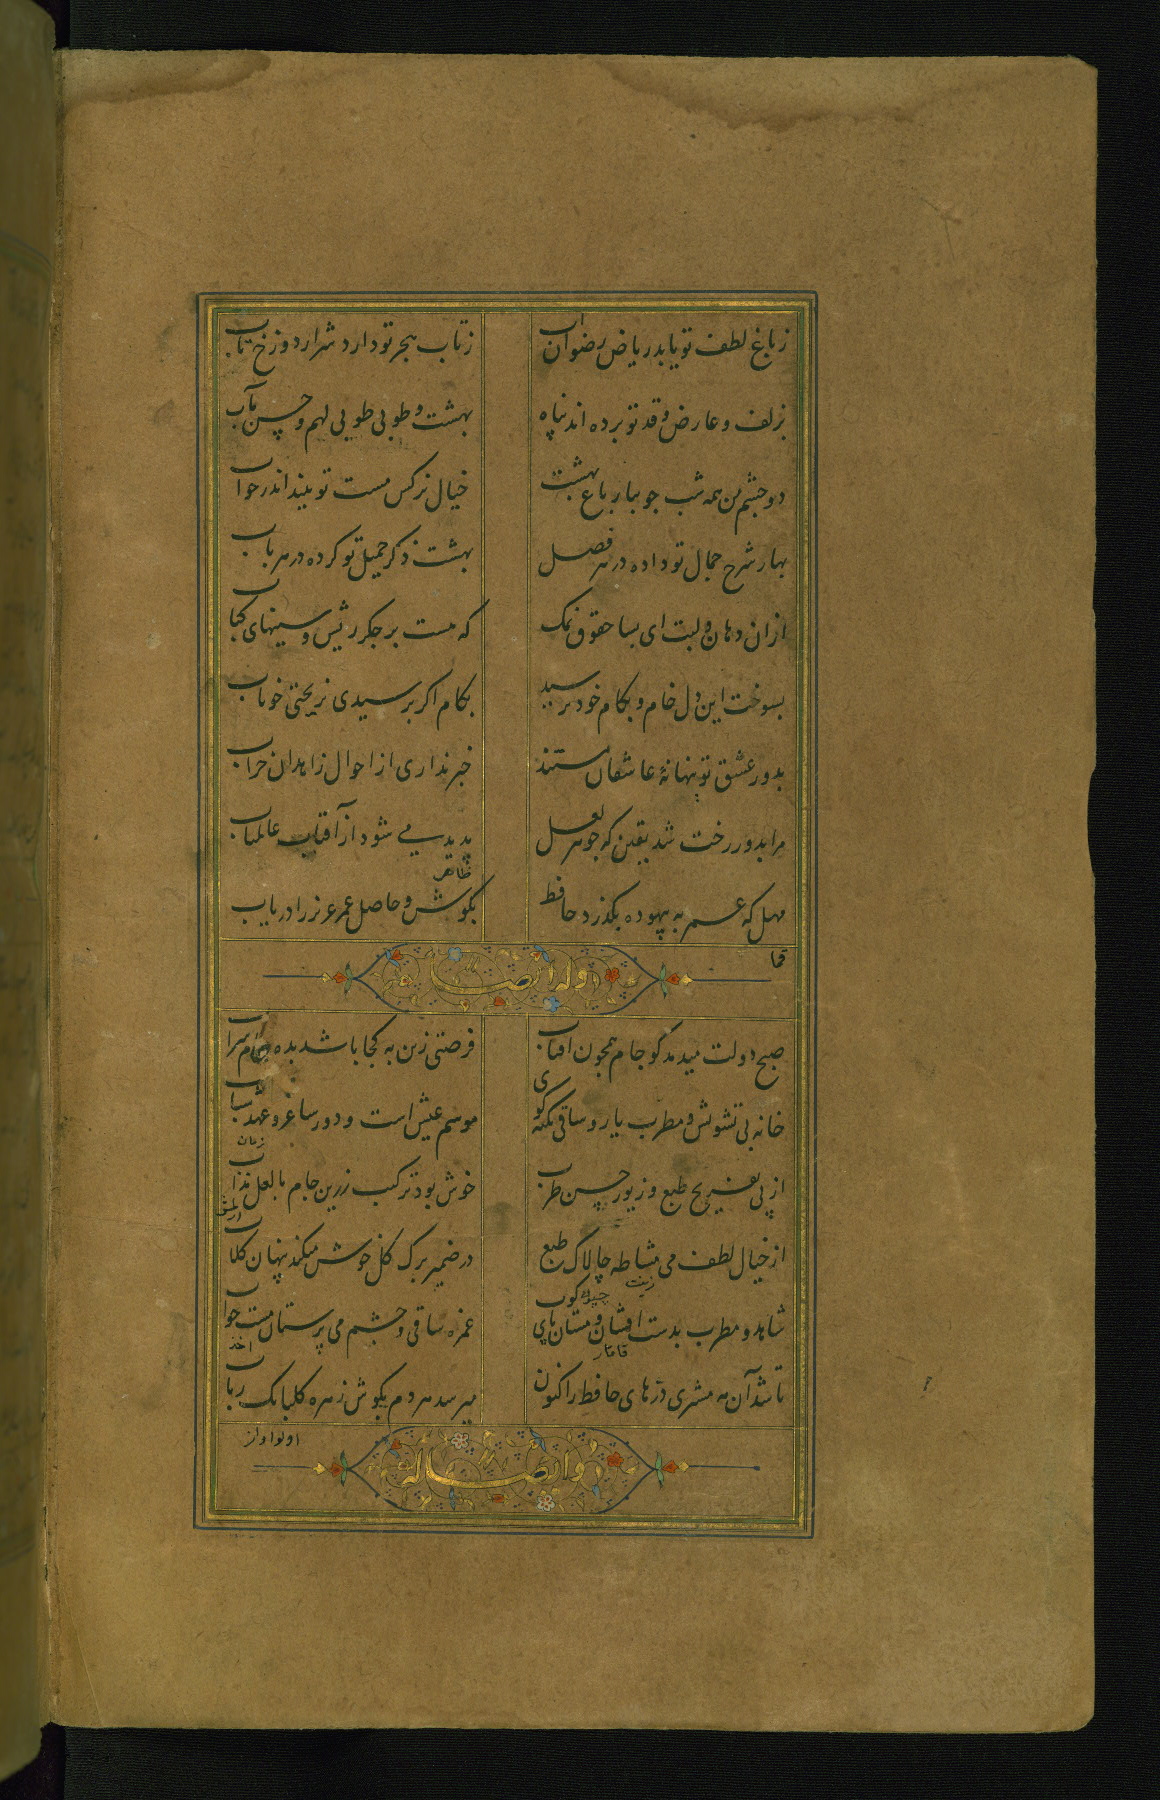 زباغ لطف تو یابد ریاض رضوان آب
زتاب هجر تو دارد شرار دوزخ تاب
بزلف و عارض و قد تو برده اند پناه
بهشت و طوبی طوبی لهم و حسن مآب
دو چشم من همه شب جویبار باغ بهشت
خیال نرکس مست تو بیند اندر خواب
بهار شرح جمال تو داده در هر فصل
بهشت ذکر جمیل تو کرده در هر باب
ازان دهان و لبت ای بسا حقوق نمک
که هست بر جکر ریش و سینهای کباب
بسوخت این دل خام و بکام خود نرسید
بکام اکر برسیدی نریختی خوناب
بدور عشق تو پنهانهٔ عاشقان مستند
خبر نداری از احوال زاهدان خراب
مرا بدور رخت شد یقین که جوهر لعل
پدید می شود از آفتاب عالمتاب
ظاهر
مهل که عمر به بیهوده بکذرد حافظ
بکوش و حاصل عمر عزیز را دریاب
وله ایضا
صبح دولت میدمد کو جام همچون افتاب
فرصتی زین به کجا باشد بده جام شراب
خانه بی تشویش و مطرب یار و ساقی نکته کوی
موسم عیش است و دور ساغر و عهد شباب
زمان
از پی تفریح طبع و زیور حسن طرب
خوش بود ترکیب زرین جام با لعل مذاب
از خیال لطف می مشاطه چالاک طبع
در ضمیر برک کل خوش میکند پنهان کلاب
زینت
شاهد و مطرب بدست افشان و مستان پای کوب
غمزه ساقی و چشم می پرستان مست خواب
تا شد آن مه مشتری درهای حافظ را کنون
میرسد هر دم بکوش زهره کلبانک رباب
وله ایضا